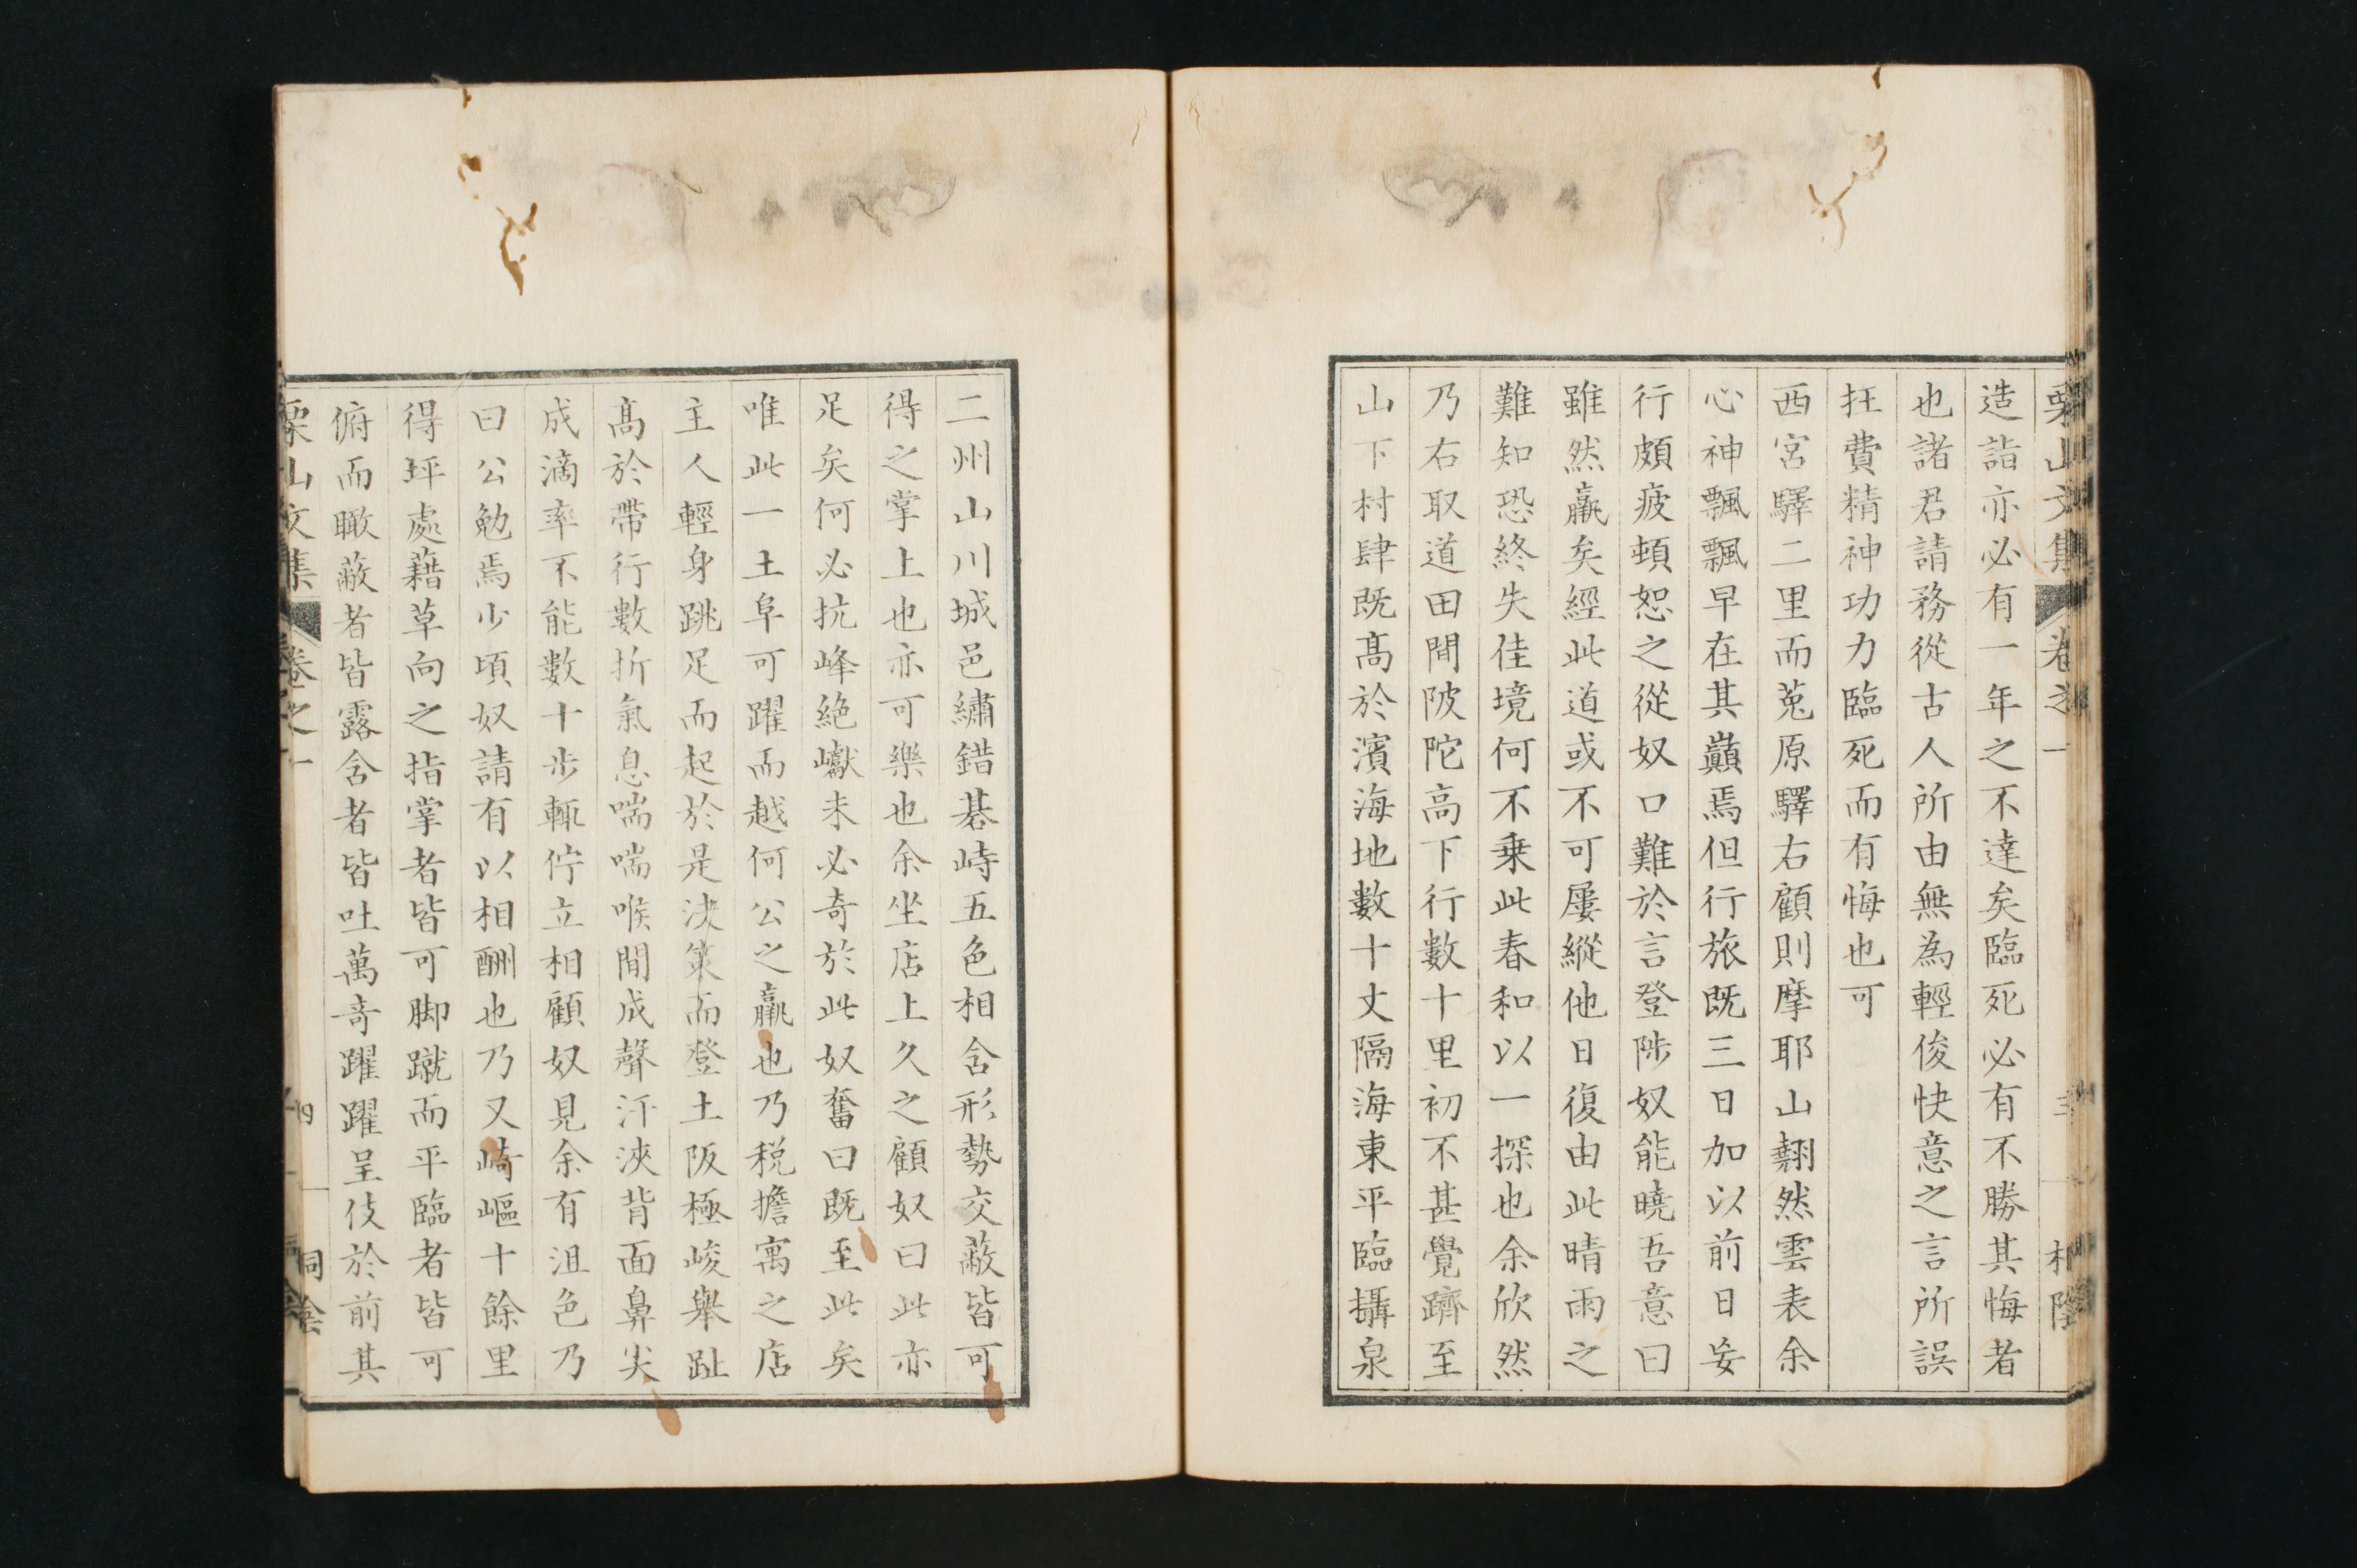 栗山文集 卷之一 三
造詣亦必有一年之不達矣臨死必有不勝其悔者
也諸君請務從古人所由無為輕俊快意之言所誤
抂費精神功力臨死而有悔也可
西宮驛二里而菟原驛右顧則摩耶山翺然雲表余
心神飄飄早在其巔焉但行旅既三日加以前日妄
行頗疲頓恕之從奴口難於言登陟奴能曉吾意曰
雖然羸矣經此道或不可屢縱他日復由此晴雨之
難知恐終失佳境何不乗此春和以一探也余欣然
乃右取道田間陂陀高下行數十里初不甚覺躋至
山下村肆既髙於濱海地數十丈隔海東平臨攝泉
二州山川城邑繡錯碁峙五色相含形勢交蔽皆可
得之掌上也亦可樂也余坐店上久之顧奴曰此亦
足矣何必抗峰絶巘未必奇於此奴奮曰既至此矣
唯此一土阜可躍而越何公之羸也乃税擔寓之店
主人輕身跳足而起於是决策而登土阪極峻舉趾
髙於帶行數折氣息喘喘喉間成聲汗浹背面鼻尖
成滴率不能數十步輒佇立相顧奴見余有沮色乃
曰公勉焉少頃奴請有以相酬也乃又崎嶇十餘里
得坪處藉草向之指掌者皆可脚蹴而平臨者皆可
俯而瞰蔽者皆露含者皆吐萬奇躍躍呈伎於前其
栗山文集 卷之一 四